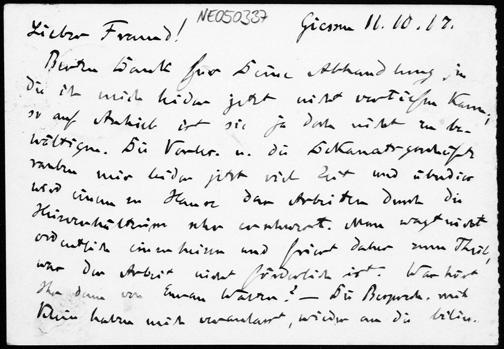 NE050337
Lieber Freund! Giessen 11.10.17.
Besten Dank für Deine Abhandlung, in
die ich mich leider jetzt nicht vertiefen kann,
so auf Anhieb ist sie ja doch nicht zu be-
wältigen. Die Vorles. u. die Dekanatsgeschäfte
rauben mir leider jetzt viel Zeit und überdies
wird einem zu Hause das Arbeiten durch die
sehr erschwert. Man wagt nicht
ordentlich einzuheizen und friert daher zum Theil,
was der Arbeit nicht förderlich ist. Was hört
Ihr denn von Waren? — Die Besprech. mit
Klein haben mich veranlasst, wieder an die bilin-